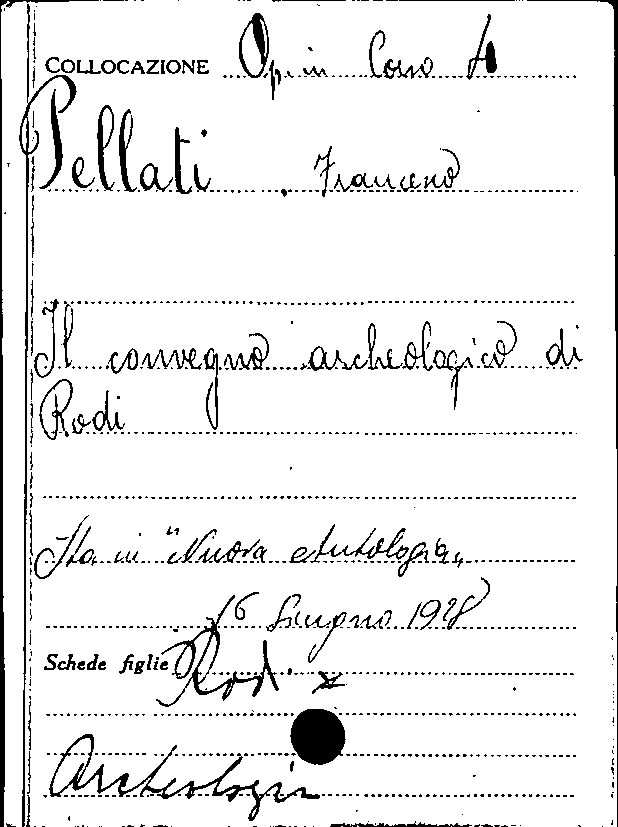 COLLOCAZIONE Op. in Corso A
Pellati, Francesco
Il convegno archeologico di
Rodi
Sta in "Nuova Antologia„
16 Giugno 1928
Schede figlie Rodi x
Archeologia